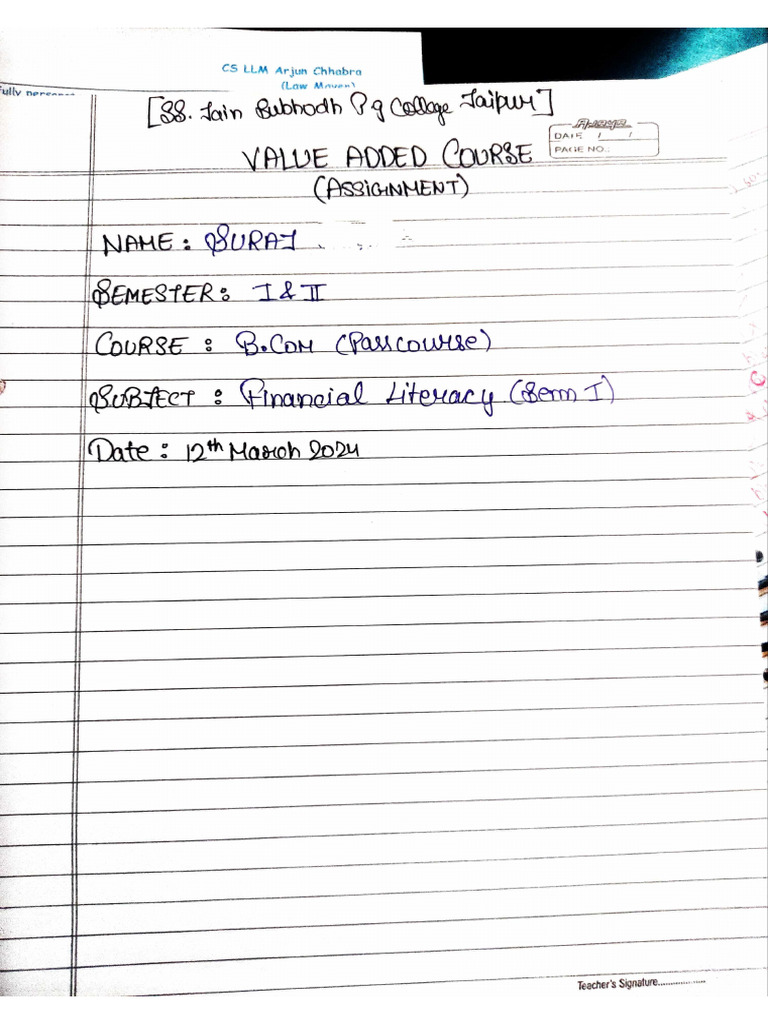 CS LLM Arjun Chhabra
(Law Maven)
[SS. Jain Subhodh Pg College Jaipur]
DATE / /
PAGE NO.:
VALUE ADDED COURSE
(ASSIGNMENT)
NAME: SURAJ
SEMESTER: I & II
COURSE : B.COM (Passcourse)
SUBJECT : Financial Literacy (Sem I)
Date : 12th March 2024
Teacher's Signature..................